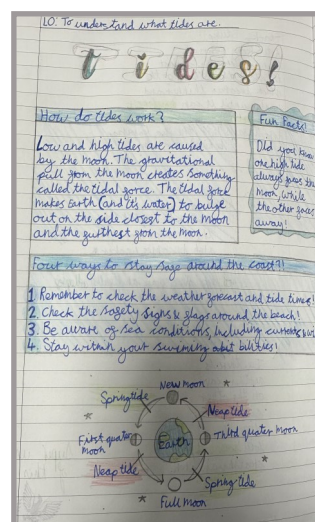 LO: To understand what tides are.
tides!
How do tides work?
Low and high tides are caused
by the moon. The gravitational
pull from the moon creates something
called the tidal force. The tidal force
makes Earth (and its water) to bulge
out on the side closest to the moon
and the furthest from the moon.
Fun Facts!
Did you know
one high tide
always faces the
moon, while
the other faces
away!
Four ways to stay safe around the coast!!
1 Remember to check the weather forecast and tide times!
2 Check the safety signs & flags around the beach!
3. Be aware of sea conditions, including currents &
4. Stay within your swimming abit bilities!
New moon
Spring tide
Neap tide
First quater
moon
Earth
Third quater moon
Neap tide
Spring tide
Full moon